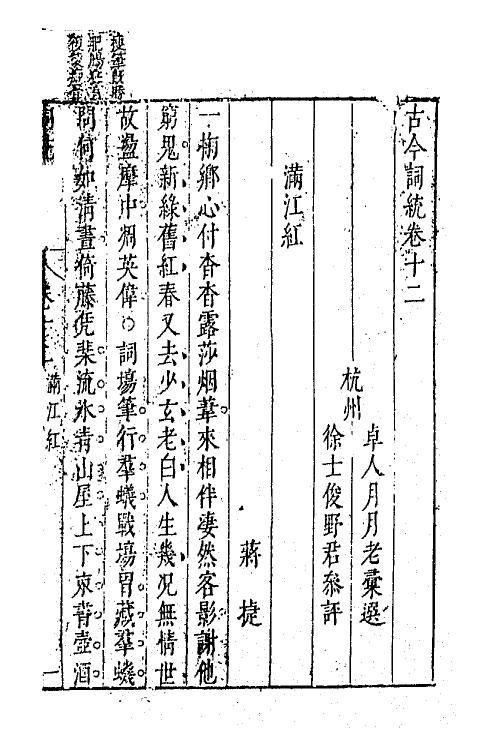 古今詞統卷十二
杭州
卓人月月老彙選
徐士俊野君叅評
滿江紅
蔣捷
一掬鄉心付杳杳露莎烟葦來相伴凄然客影謝他
窮鬼新綠舊紅春又去少玄老白人生幾况無情世
故盪摩中凋英偉○詞塲筆行羣蟻戰塲冑藏羣蟣
問何如清晝倚藤凭棐流水青山屋上下束書壺酒
卷十二
滿江紅
一